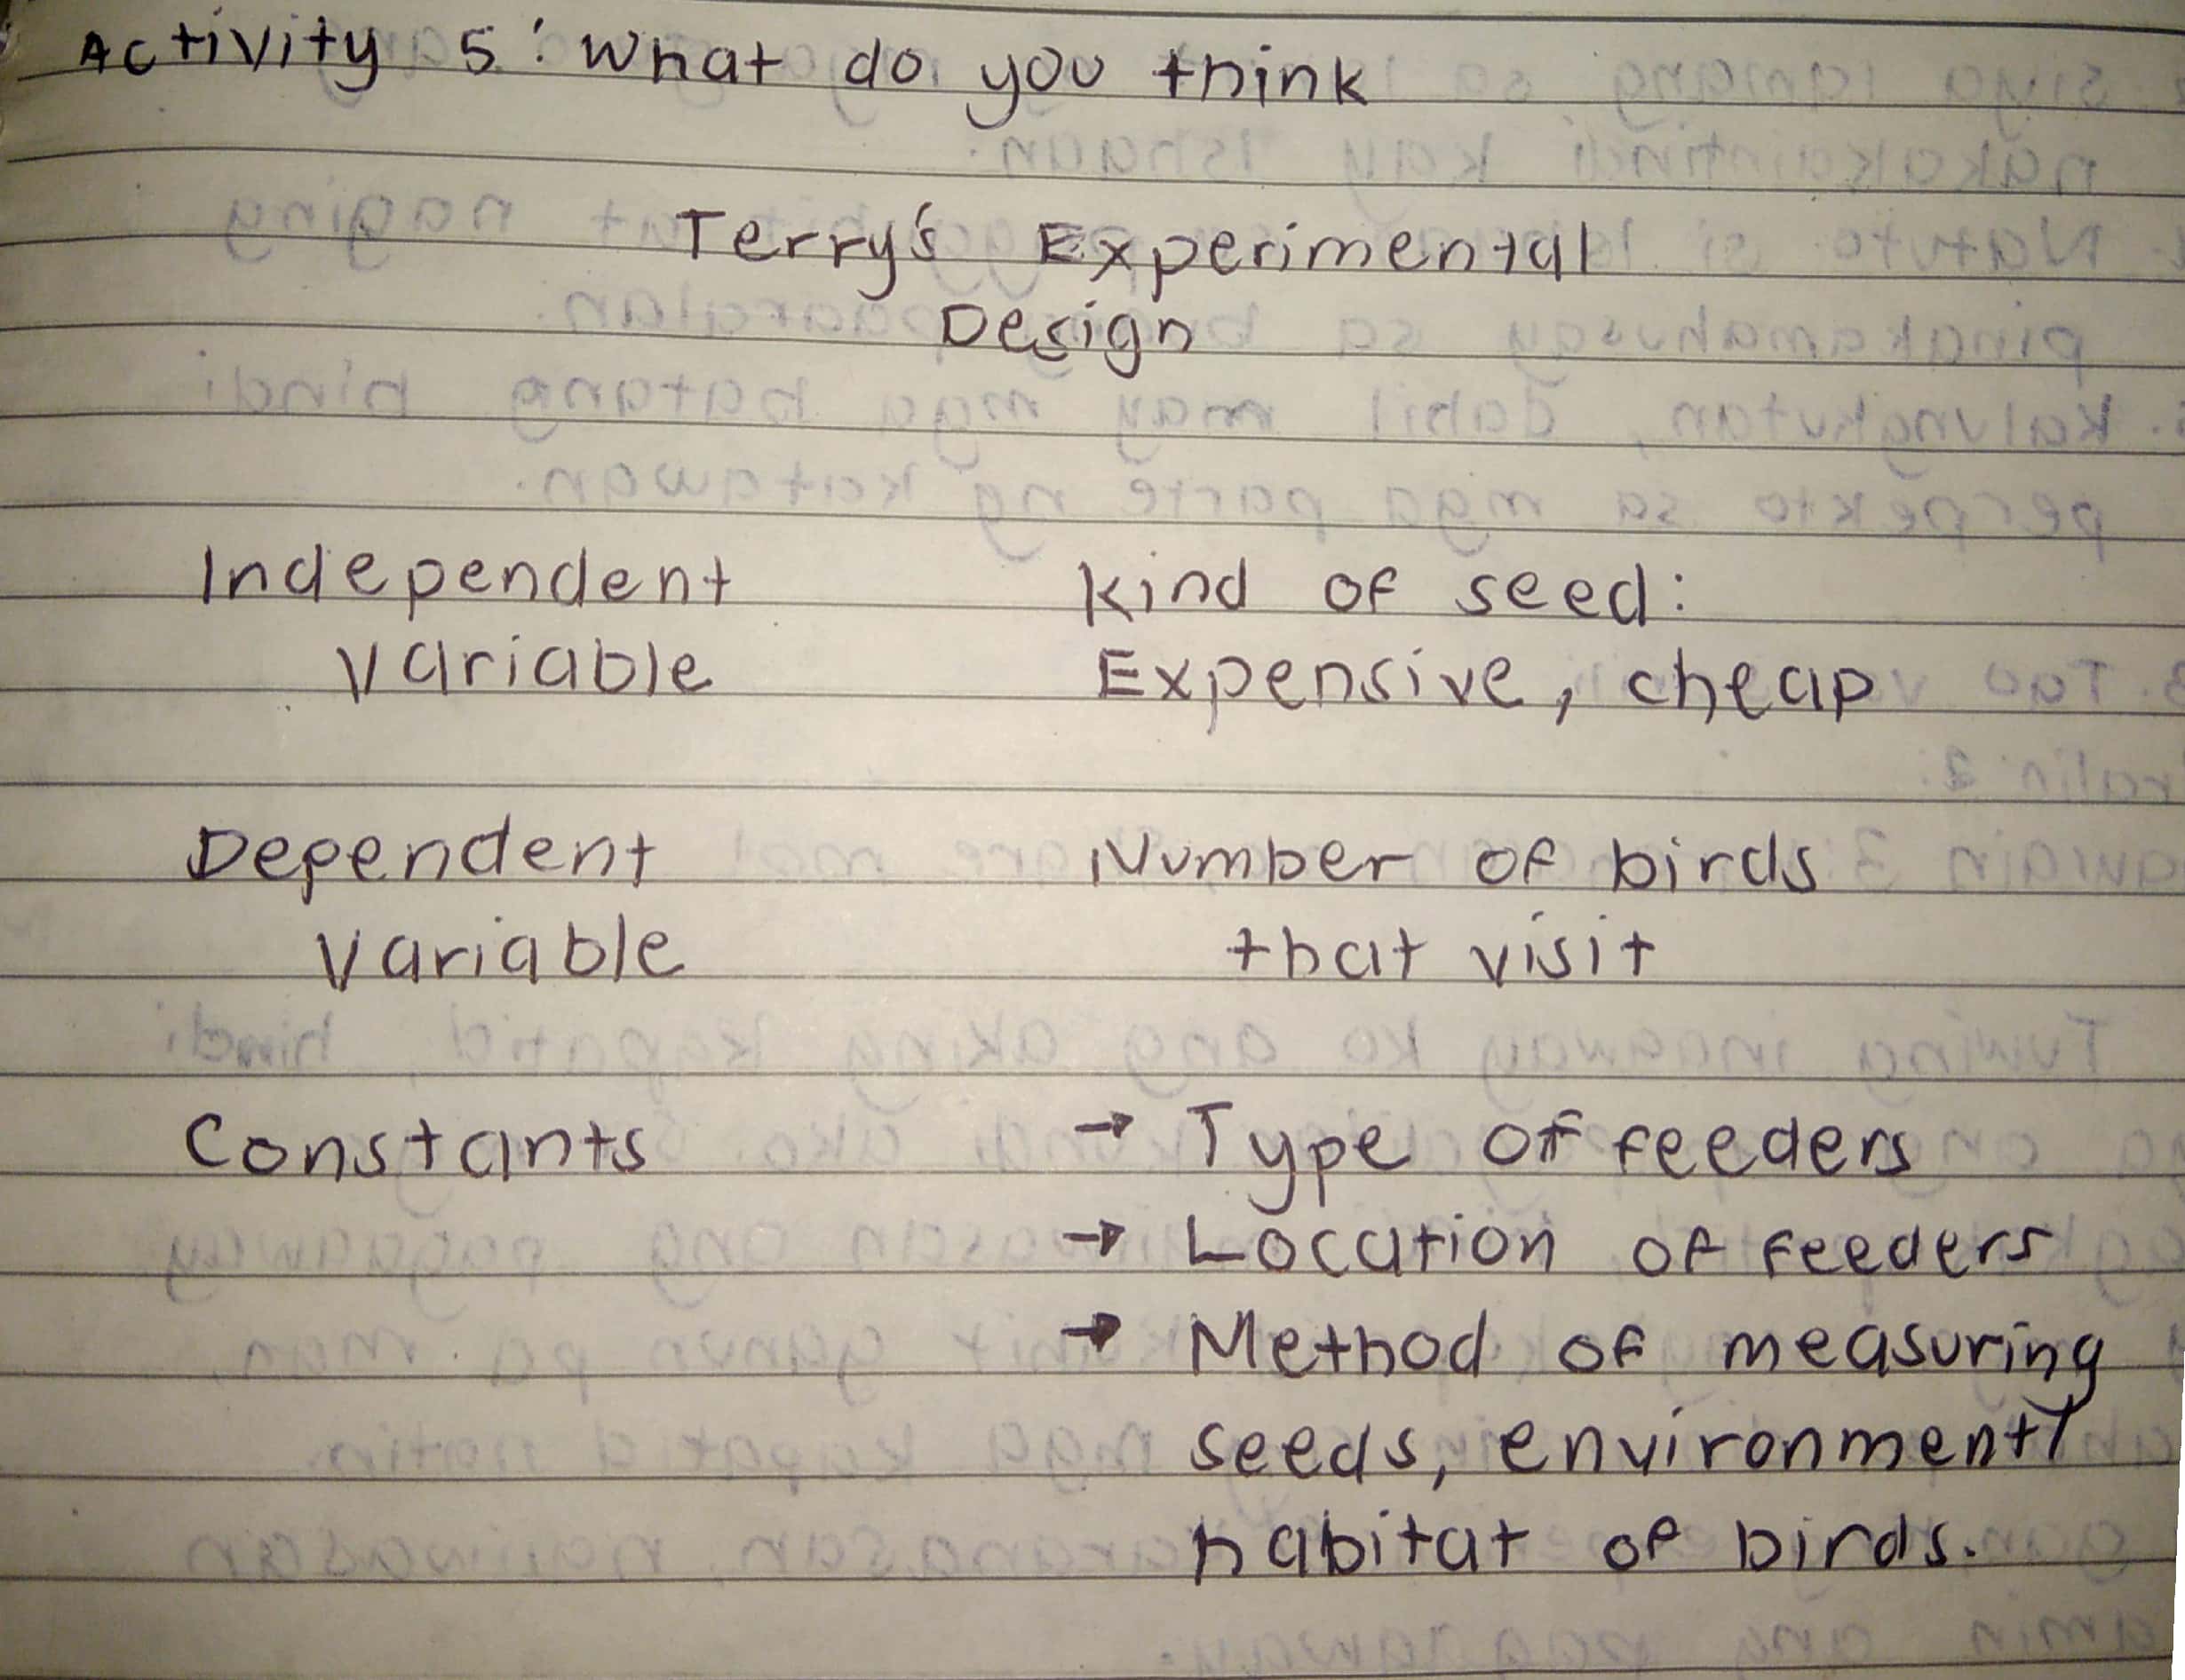 Activity 5: What do you think
Terry's Experimental
Design
Independent Kind of seed:
Variable Expensive, cheap
Dependent Number of birds
Variable that visit
Constants → Type of feeders
→ Location of feeders
→ Method of measuring
seeds, environment/
habitat of birds.